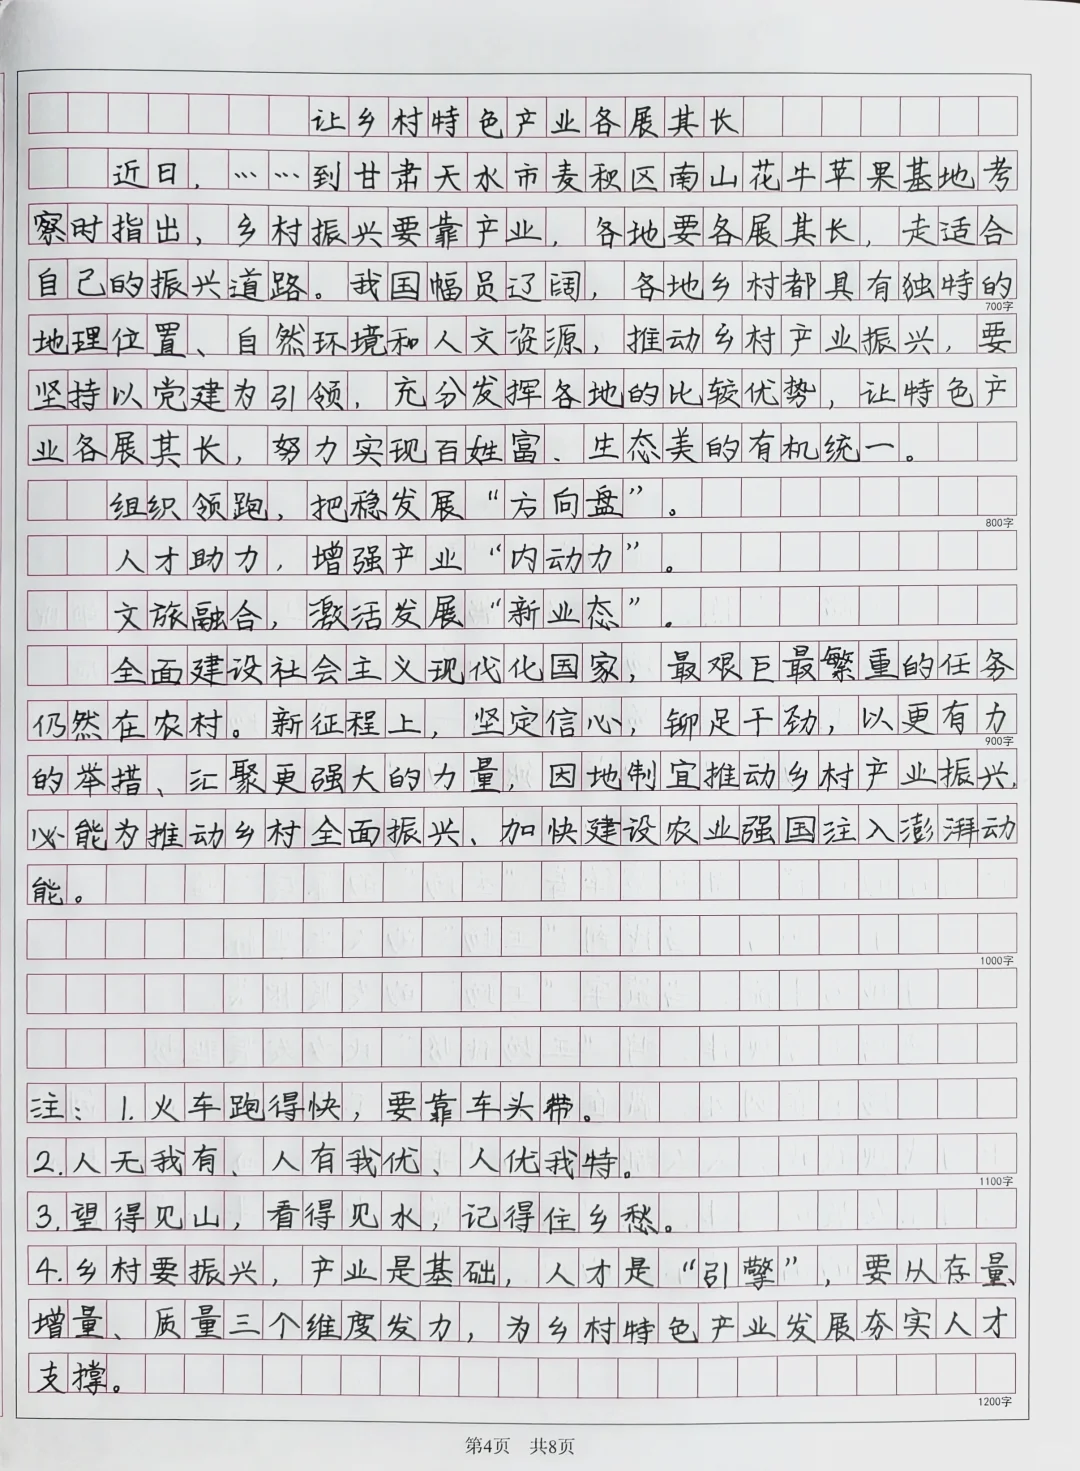 让乡村特色产业各展其长
近日，……到甘肃天水市麦积区南山花牛苹果基地考
察时指出，乡村振兴要靠产业，各地要各展其长，走适合
自己的振兴道路。我国幅员辽阔，各地乡村都具有独特的
700字
地理位置、自然环境和人文资源，推动乡村产业振兴，要
坚持以党建为引领，充分发挥各地的比较优势，让特色产
业各展其长，努力实现百姓富、生态美的有机统一。
组织领跑，把稳发展“方向盘”。
800字
人才助力，增强产业“内动力”。
文旅融合，激活发展“新业态”。
全面建设社会主义现代化国家，最艰巨最繁重的任务
仍然在农村。新征程上，坚定信心，铆足干劲，以更有力
900字
的举措、汇聚更强大的力量，因地制宜推动乡村产业振兴，
必能为推动乡村全面振兴、加快建设农业强国注入澎湃动
能。
1000字
注：1.火车跑得快，要靠车头带。
2.人无我有、人有我优、人优我特。
1100字
3.望得见山，看得见水，记得住乡愁。
4.乡村要振兴，产业是基础，人才是“引擎”，要从存量、
增量、质量三个维度发力，为乡村特色产业发展夯实人才
支撑。
1200字
第4页 共8页